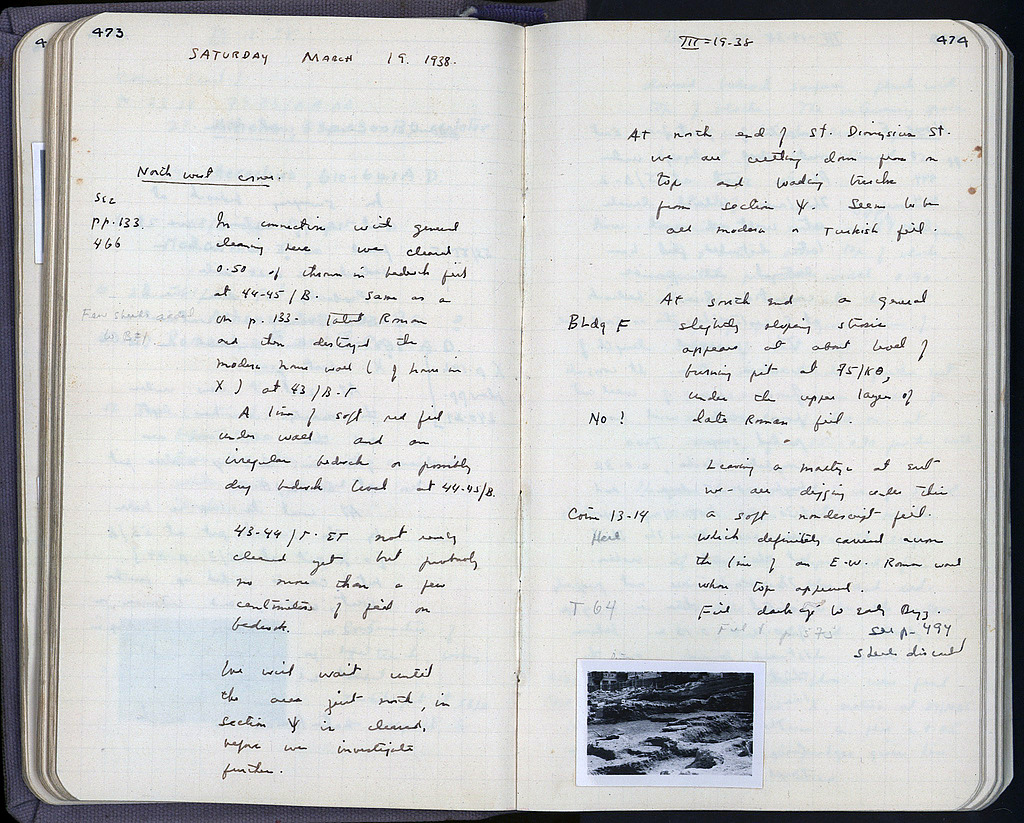 473
SATURDAY MARCH 19. 1938.
North west corner
See
pp. 133.
466
In connection with general
cleaning here we cleared
0.50 of thrown in bedrock fill
at 44-45/B. Same as a
on p. 133. Late Roman
and then destroyed the
modern house wall (of house in
X) at 43/B-Γ
A line of soft red fill
under wall and on
irregular bedrock or possibly
dug bedrock level at 44-45/B.
43-44/Γ- not really
cleared yet but probably
no more than a few
centimetres of fill on
bedrock.
We will wait until
the area just north, in
section Ψ is cleared,
before we investigate
further.
474
III-19-38
At north end of St. Dionysius St.
we are cutting down from on
top and wading
from section Ψ. Seems to be
all modern or Turkish fill.
At south end a general
Bldg F
slightly sloping
appears at about level of
burning pit at 75/ΚΘ,
under the upper layer of
No!
late Roman fill.
Leaving a at east
we are digging under this
Coins 13-14
a soft nondescript fill.
Here
which definitely carried across
the line of an E.W. Roman wall
when top appeared.
T 64
Fill dark of to early Byz.
see p. 494
sherds discarded